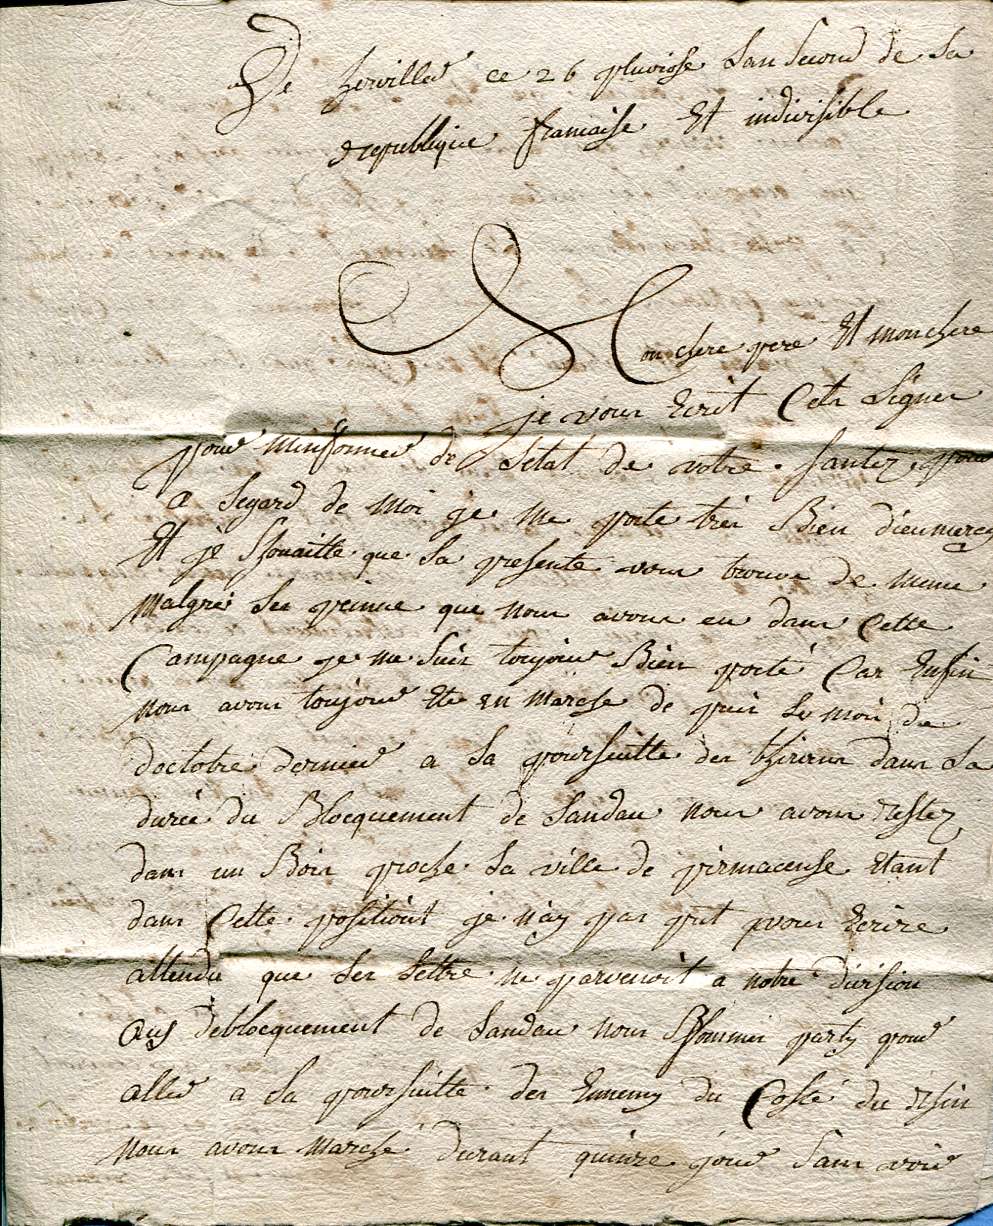 De herviller ce 26 pluviose Lan Second de La
republique francaise Et indivisible
Mon chere pere Et mon chere
je vous Ecrit Cets Ligner
pour minformer de Letat de votre santez, pour
a Legard de moi je me porte très Bien dieumercy
Et je Shouaitte que La presente vous trouve de meme
Malgré Les peinne que nous avons eu dans Cette
Campagne je me suis toujour Bien porté Car Enfin
nous avons toujour Ete En Marche de puis Le mois de
doctobre dernier a La poursuitte des dans La
durée du Blocquement de Landau nous avons restez
dans un Bois proche La ville de pirmacense Etant
dans Cette positiont je nay pas put vous Ecrire
attendu que Les Lettre ne parvenoit a notre division
au deblocquement de Landau nous Sommes party pour
aller a La poursuitte des Ennemy du Costé du Rhin
Nous avons Marché durant quinze jour Sans voir